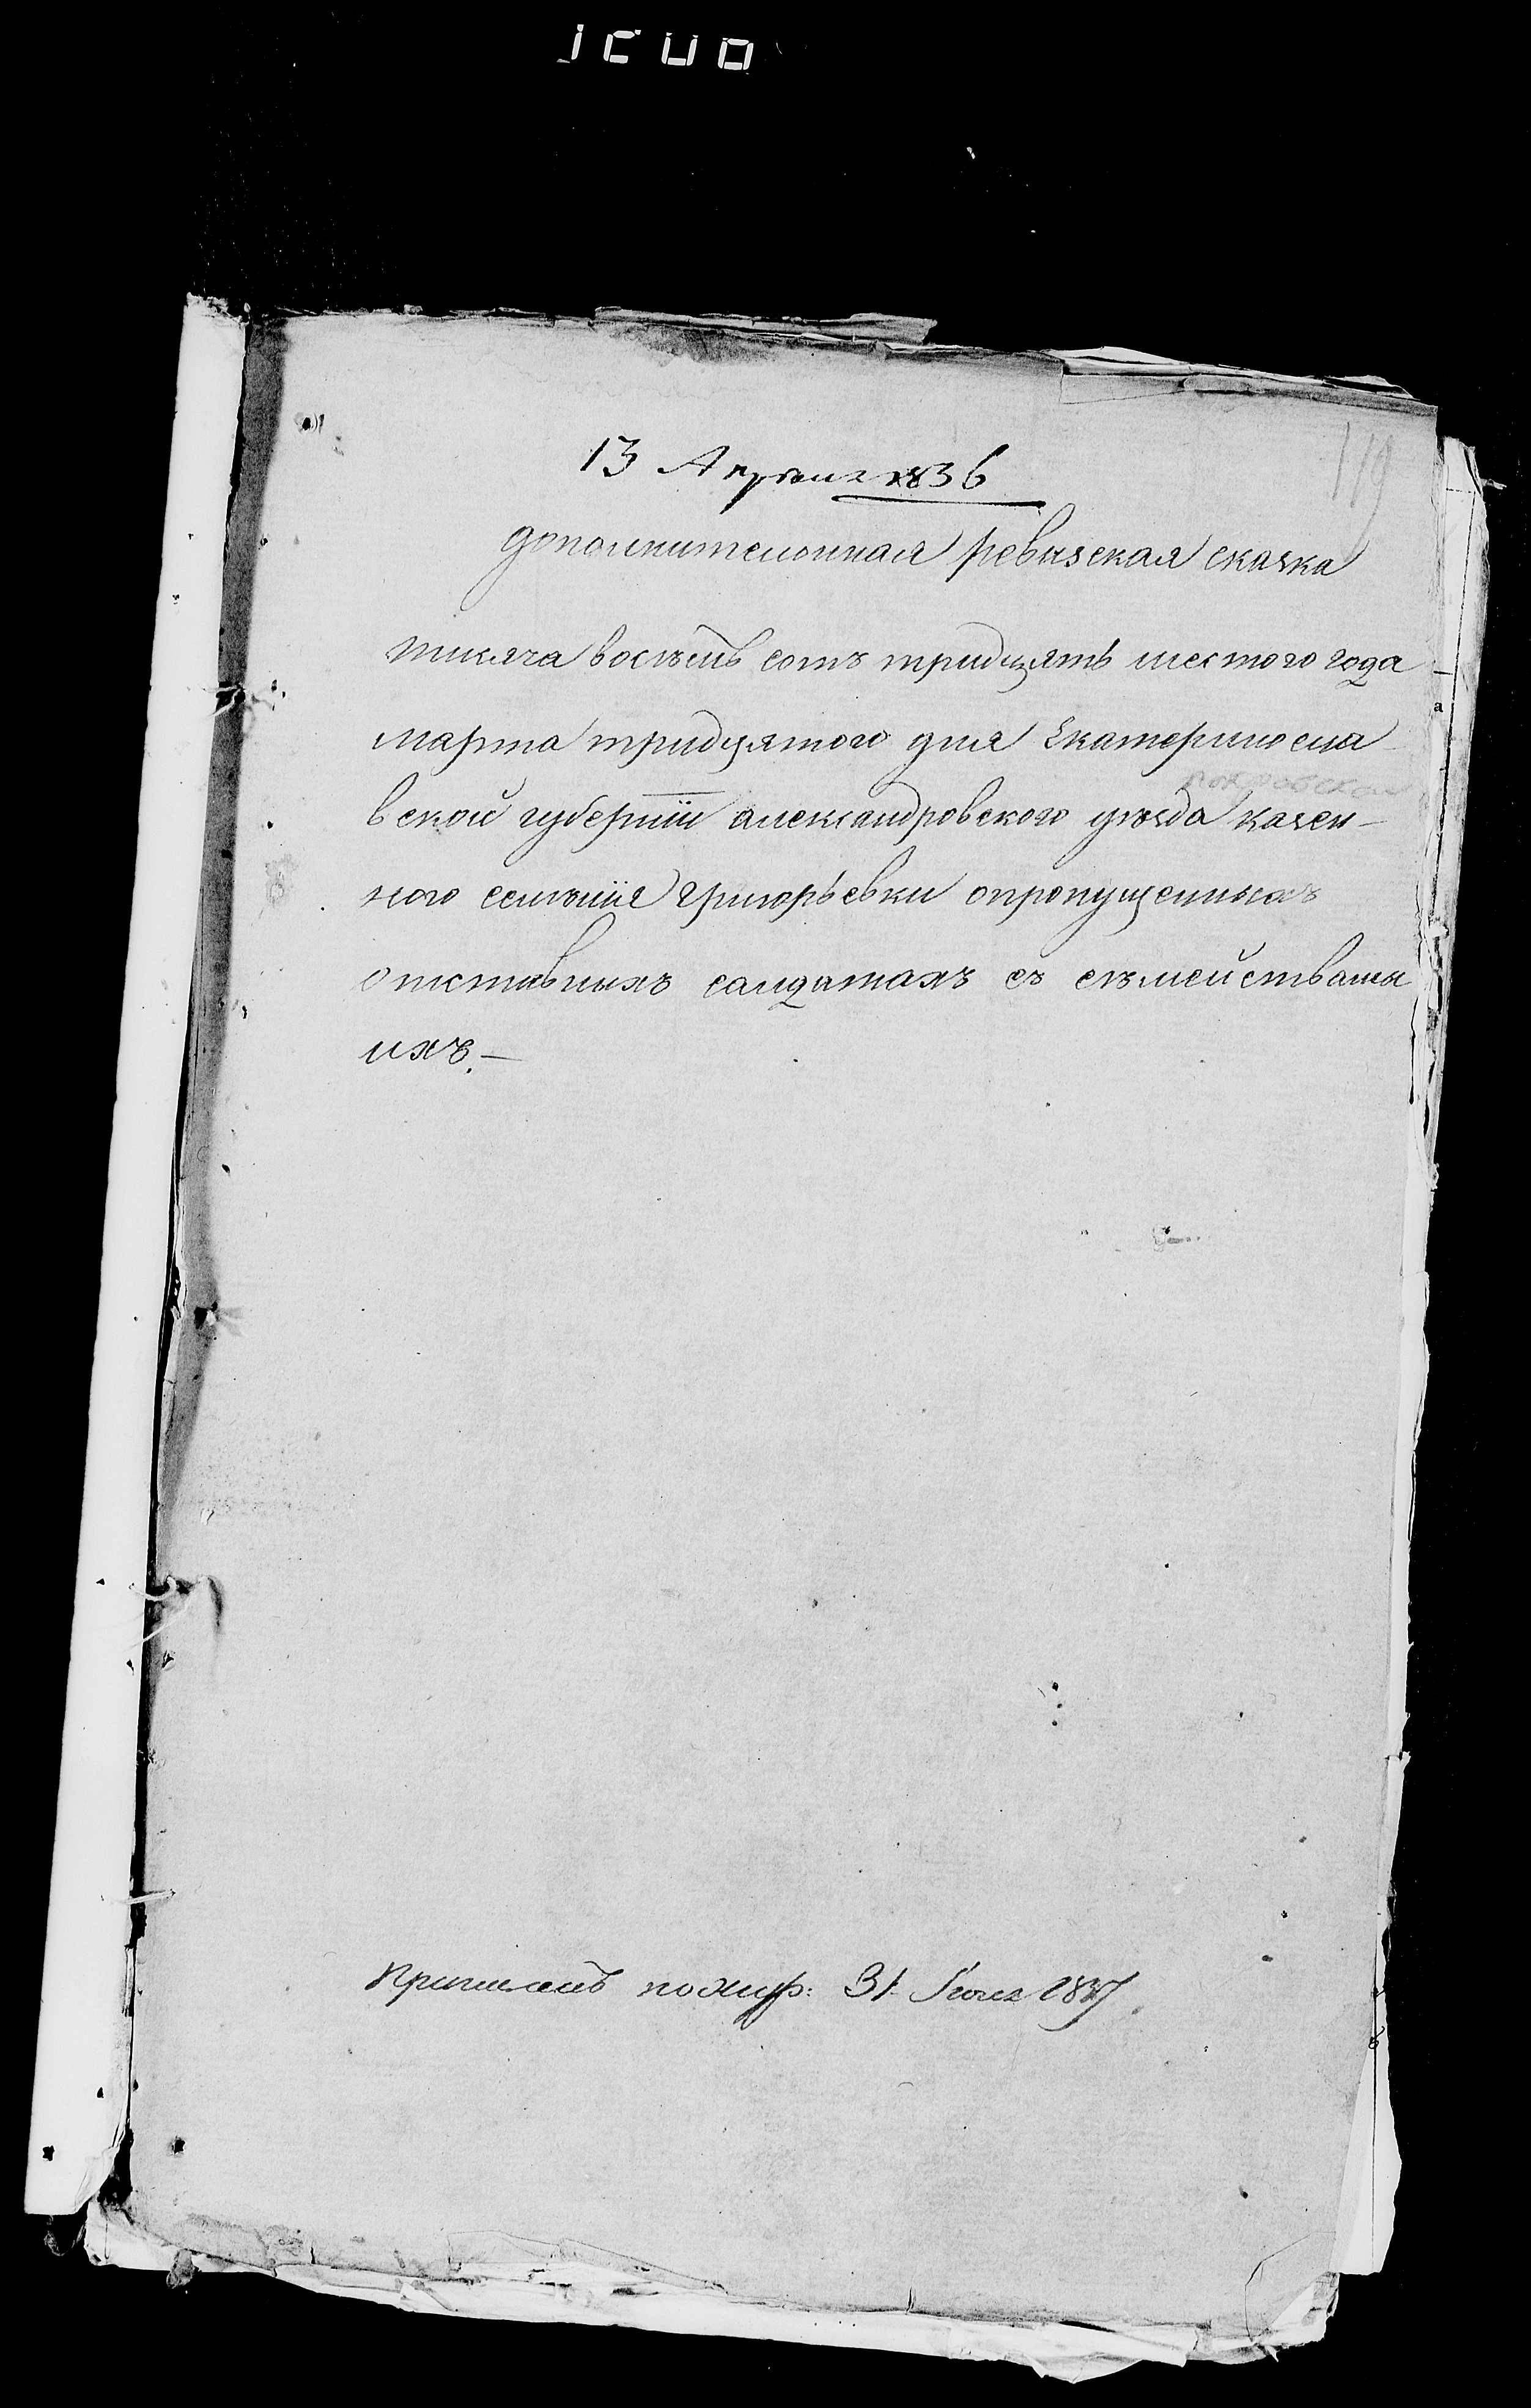 119
13 Апреля 1836
дополнителонная ревизская сказка
тисяча восѣмь сотъ тридцять шестого года
марта тридцятого дня Екатериносла
вской губернїи александровского уѣзда казен-
покровской
ного селѣнїя Григорьевки опропущенныхъ
отставныхъ салдатахъ съ сѣмействамы
ихъ.—
по жур: 31 1837